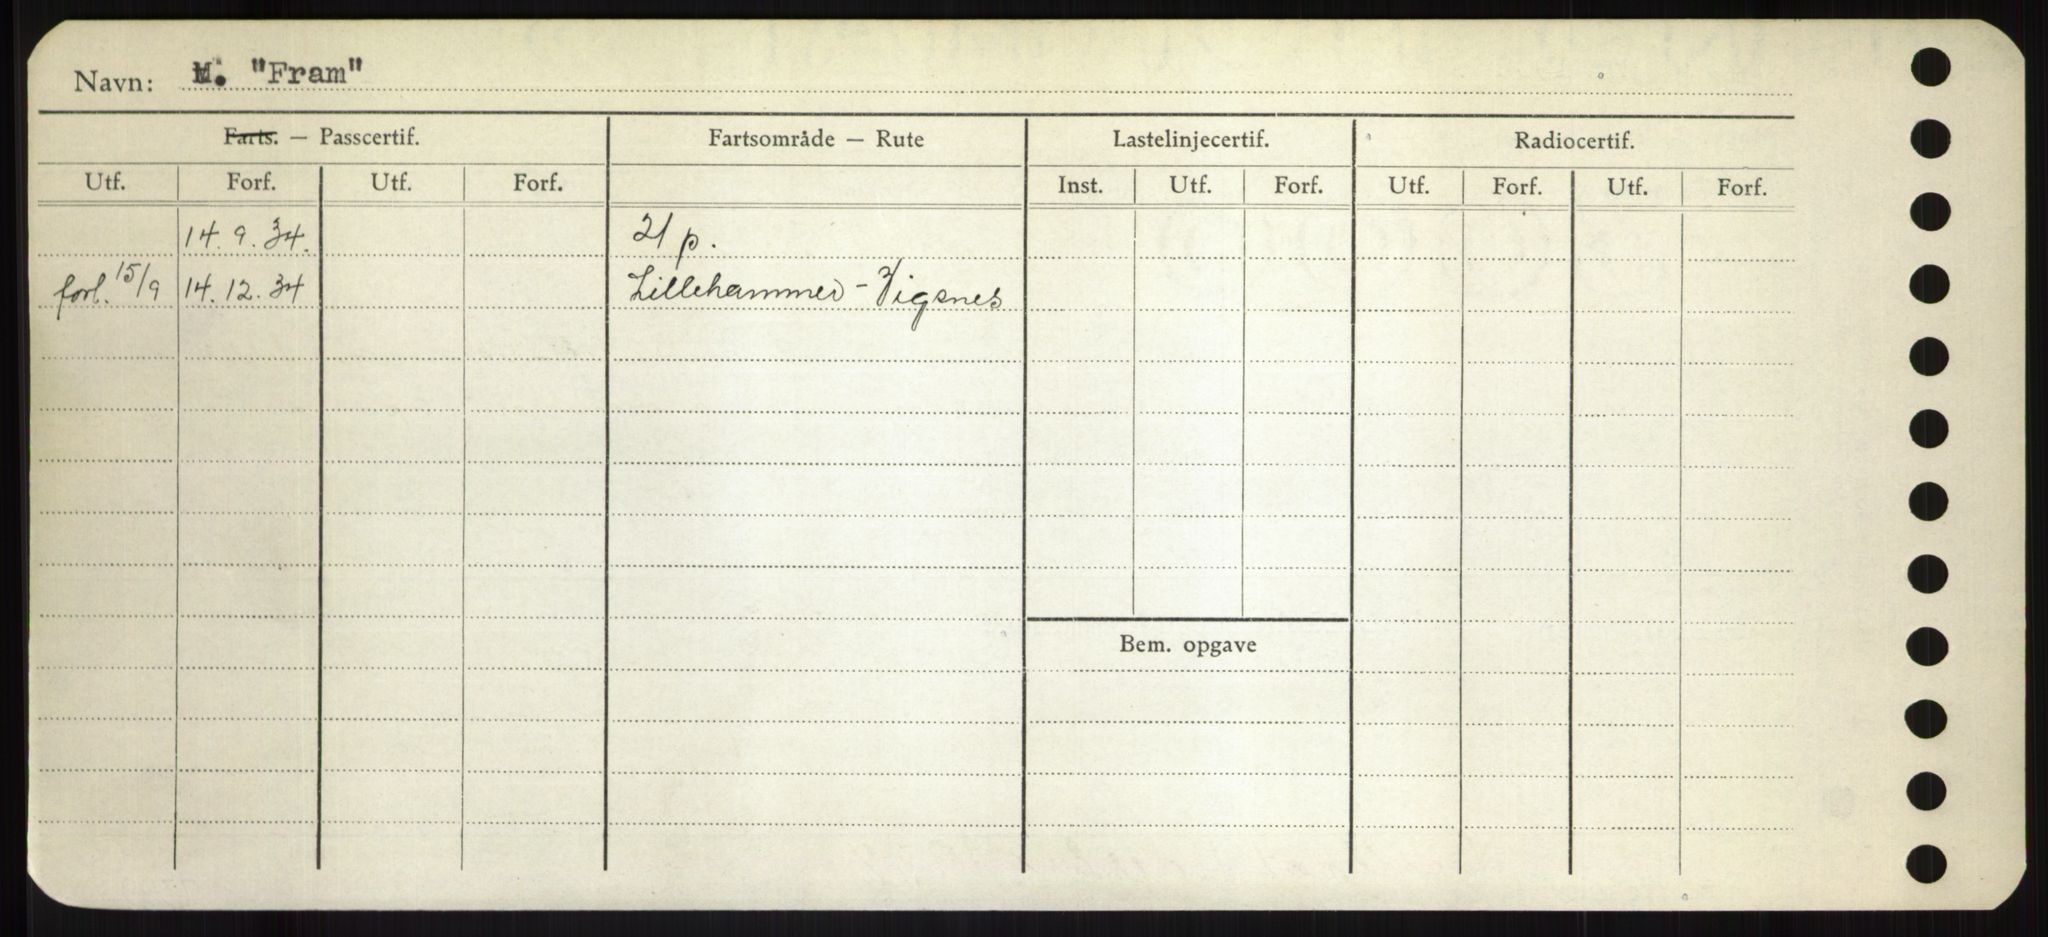 Navn: M. "Fram"
Farts. — Passcertif. Fartsområde — Rute Lastelinjecertif. Radiocertif.
Utf. Forf. Utf. Forf. Inst. Utf. Forf. Utf. Forf. Utf. Forf.
14. 9. 34. 21 p.
forl. 15/9 14. 12. 34 Lillehammer - Vigsnes
Bem. opgave